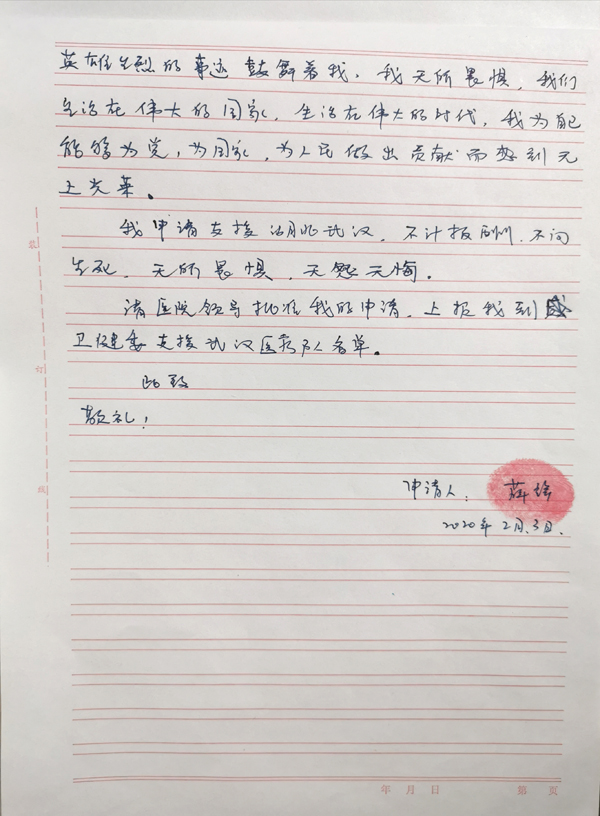 英雄先烈的事迹鼓舞着我，我无所畏惧，我们
生活在伟大的国家，生活在伟大的时代，我为自己
能够为党，为国家，为人民做出贡献而感到无
上光荣。
我申请支援湖北武汉，不计报酬，不问
生死，无所畏惧，无怨无悔。
请医院领导批准我的申请，上报我到
卫健委支援武汉医疗队名单。
此致
敬礼！
申请人：薛
2020年2月3日.
装
订
线
年 月 日
第 页